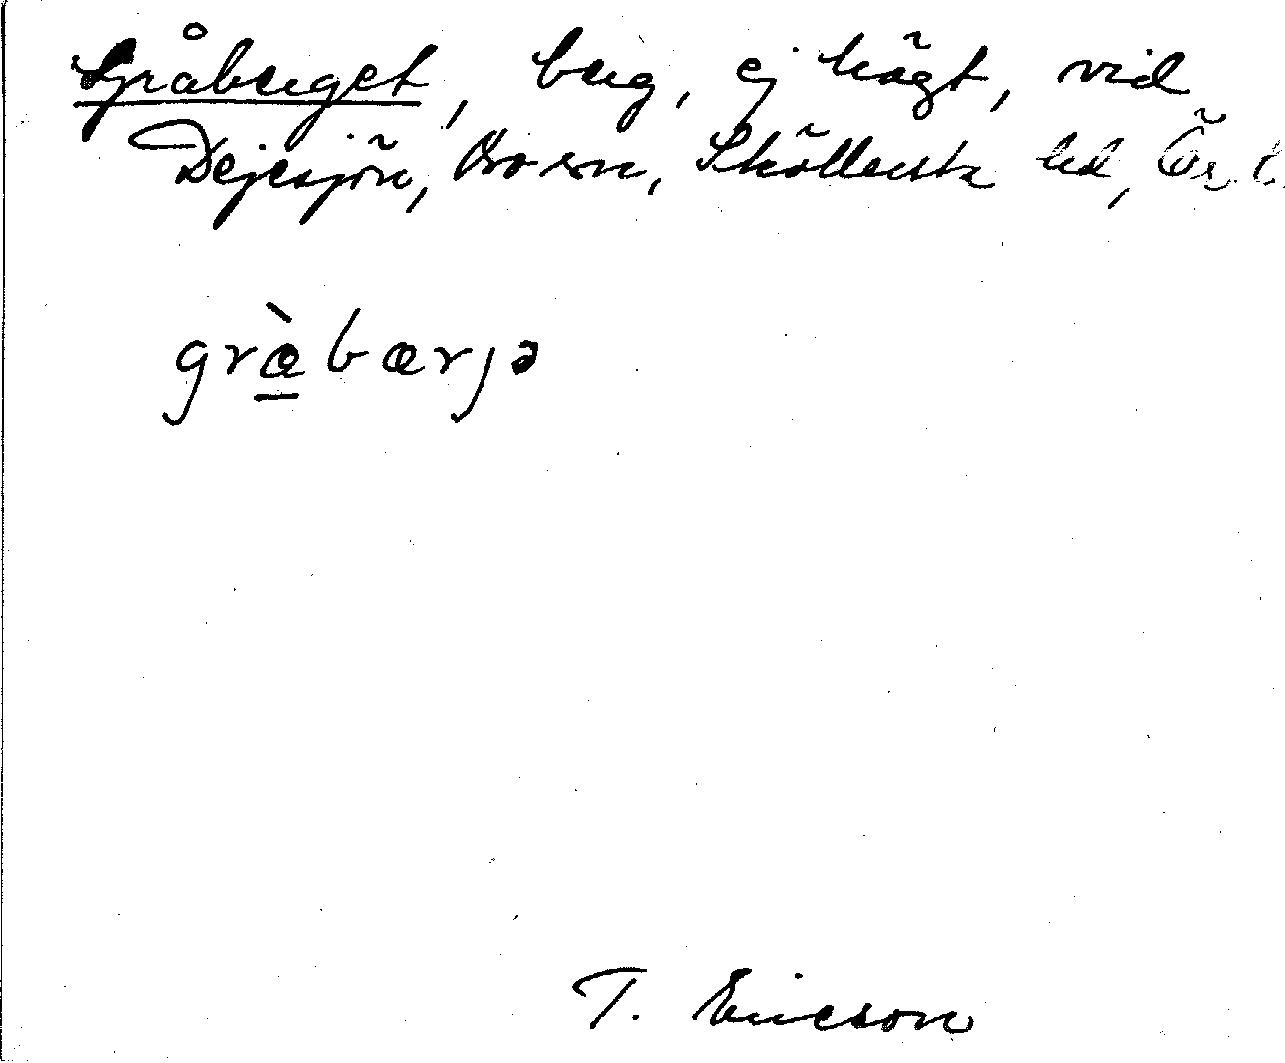 Gråberget, berg, ej högt, vid
Dejesjön, Sköllersta hd, Ör. l.
gràbærjə
T. Ericson